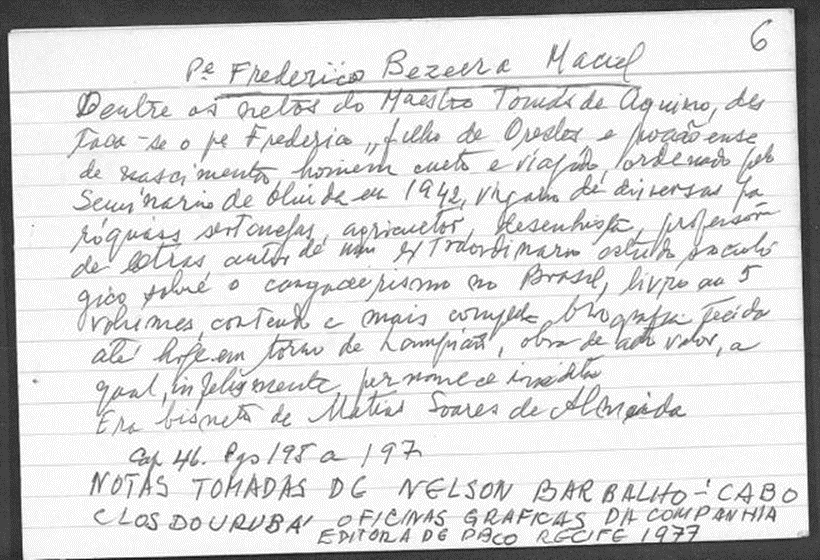 6
Pe Frederico Bezerra Maciel
Dentre os netos do Maestro Tomás de Aquino, des
taca-se o pe Frederico, filho de Orestes e poçãoense
de nascimento, homem culto e viajado, ordenado pelo
Seminario de Olinda em 1942, vigario de diversas pa
róquias sertanejas, agricultor, desenhista, professor
de letras autor de um extraordinario estudo socioló
gico sobre o cangaceirismo no Brasil, livro em 5
volumes, contendo a mais completa biografia tecida
até hoje em torno de Lampião, obra de alto valor, a
qual, infelizmente, permanece inedita
Era bisneto de Matias Soares de Almeida
Cap 46. Pgs 195 a 197
NOTAS TOMADAS DE NELSON BARBALHO - CABO
CLOS DO URUBÁ OFICINAS GRAFICAS DA COMPANHIA
EDITORA DE PACO RECIFE 1977